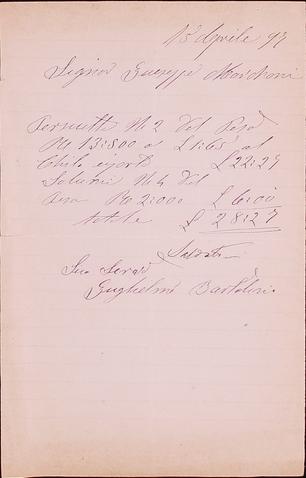 13 Aprile 97
Signor Giuseppe Marchioni
No 2 Del Peso
K 13:500 a £ 1:65 al
Chilo £ 22:27
Salumi No 4 Del
Peso K 2:000 £ 6:00
totale £ 28:27
Saldato
Suo Servo
Guglielmo Bartolini